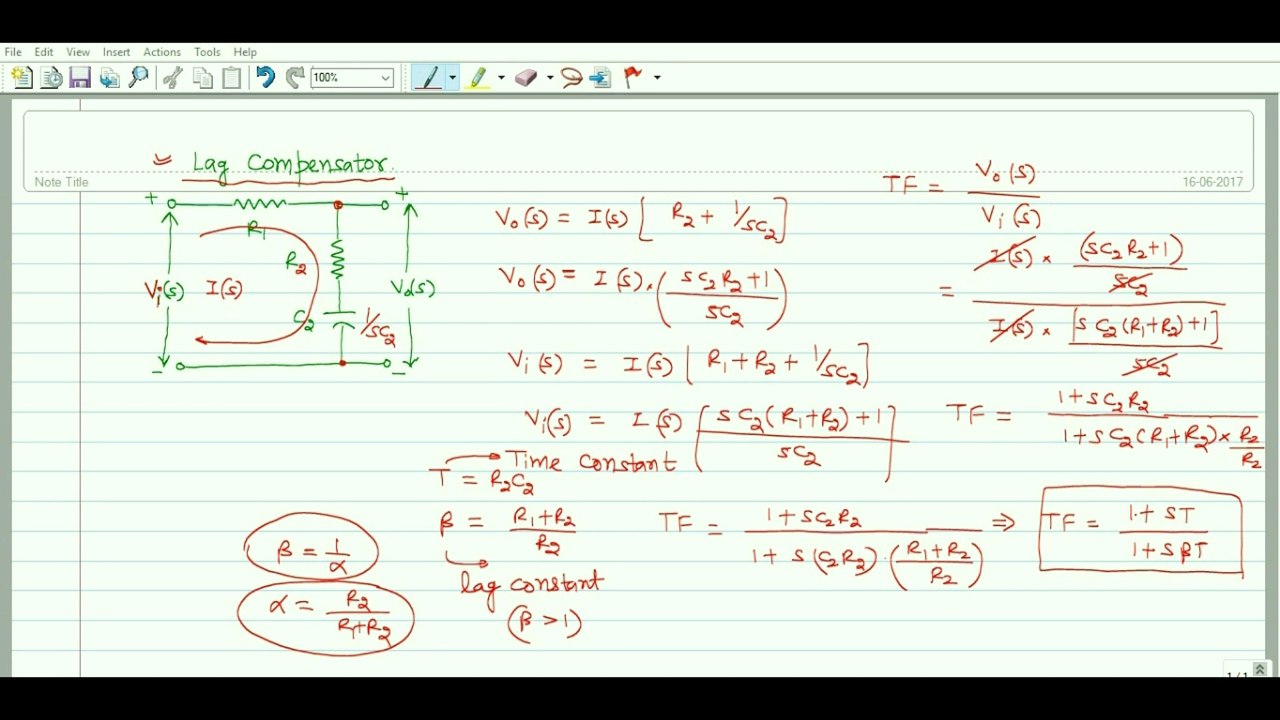 File Edit View Insert Actions Tools Help
100%
Note Title
16-06-2017
Lag Compensator.
+ R1 +
R2
Vi(s) I(s) Vo(s)
C2 1/SC2
− −
Vo(s) = I(s) [ R2 + 1/SC2 ]
Vo(s) = I(s) × ( (SC2R2+1) / SC2 )
Vi(s) = I(s) [ R1+R2 + 1/SC2 ]
Vi(s) = I(s) [ (SC2(R1+R2)+1) / SC2 ]
→ Time constant
T = R2C2
β = (R1+R2) / R2
lag constant
(β > 1)
β = 1/α
α = R2 / (R1+R2)
TF = Vo(s) / Vi(s)
= I(s) × (SC2R2+1) / SC2
I(s) × [SC2(R1+R2)+1] / SC2
TF = 1+SC2R2 / 1+SC2(R1+R2) × R2/R2
TF = 1+SC2R2 / 1+S(C2R2)·((R1+R2)/R2) ⇒ TF = 1+ST / 1+SβT
1/1